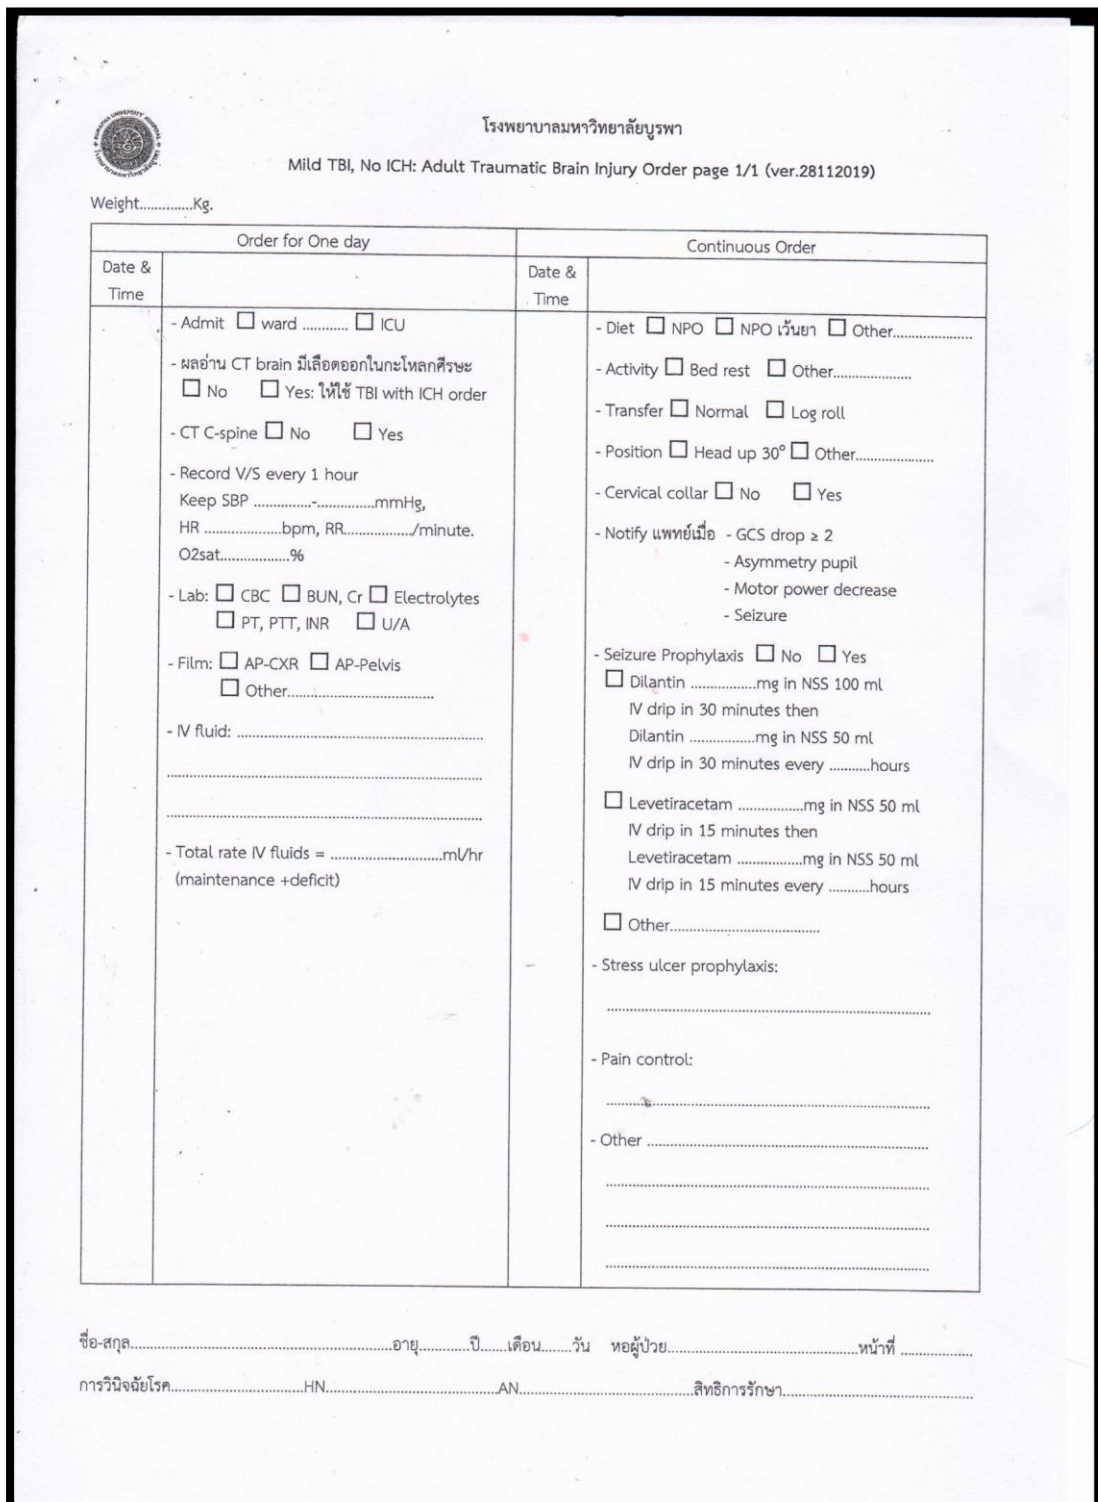 BURAPHA UNIVERSITY HOSPITAL
โรงพยาบาลมหาวิทยาลัยบูรพา
โรงพยาบาลมหาวิทยาลัยบูรพา
Mild TBI, No ICH: Adult Traumatic Brain Injury Order page 1/1 (ver.28112019)
Weight.............Kg.
Order for One day
Date &
Time
- Admit ☐ ward ............ ☐ ICU
- ผลอ่าน CT brain มีเลือดออกในกะโหลกศีรษะ
☐ No ☐ Yes: ให้ใช้ TBI with ICH order
- CT C-spine ☐ No ☐ Yes
- Record V/S every 1 hour
Keep SBP ...............-...............mmHg,
HR ....................bpm, RR................../minute.
O2sat..................%
- Lab: ☐ CBC ☐ BUN, Cr ☐ Electrolytes
☐ PT, PTT, INR ☐ U/A
- Film: ☐ AP-CXR ☐ AP-Pelvis
☐ Other......................................
- IV fluid: ................................................................
..................................................................................
..................................................................................
- Total rate IV fluids = .............................ml/hr
(maintenance +deficit)
Continuous Order
Date &
Time
- Diet ☐ NPO ☐ NPO เว้นยา ☐ Other.....................
- Activity ☐ Bed rest ☐ Other....................
- Transfer ☐ Normal ☐ Log roll
- Position ☐ Head up 30° ☐ Other....................
- Cervical collar ☐ No ☐ Yes
- Notify แพทย์เมื่อ - GCS drop ≥ 2
- Asymmetry pupil
- Motor power decrease
- Seizure
- Seizure Prophylaxis ☐ No ☐ Yes
☐ Dilantin .................mg in NSS 100 ml
IV drip in 30 minutes then
Dilantin .................mg in NSS 50 ml
IV drip in 30 minutes every ..........hours
☐ Levetiracetam .................mg in NSS 50 ml
IV drip in 15 minutes then
Levetiracetam .................mg in NSS 50 ml
IV drip in 15 minutes every ..........hours
☐ Other.......................................
- Stress ulcer prophylaxis:
....................................................................................
- Pain control:
....................................................................................
- Other .........................................................................
....................................................................................
....................................................................................
....................................................................................
ชื่อ-สกุล....................................................................อายุ.............ปี.......เดือน........วัน หอผู้ป่วย..................................................หน้าที่ ...................
การวินิจฉัยโรค..................................HN.............................................AN.............................................สิทธิการรักษา..................................................